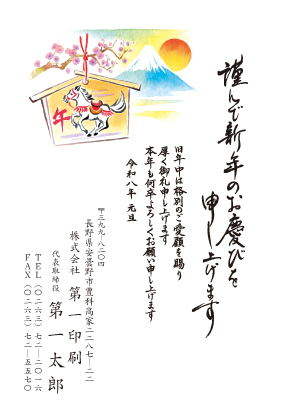 謹んで新年のお慶びを
申し上げます
旧年中は格別のご愛顧を賜り
厚く御礼申し上げます
本年も何卒よろしくお願い申し上げます
令和八年元旦
〒三九九-八二〇四
長野県安曇野市豊科高家二二八七-二二
株式会社 第一印刷
代表取締役 第一太郎
TEL(〇二六三)七二-二〇一六
FAX(〇二六三)七二-五五七〇
午